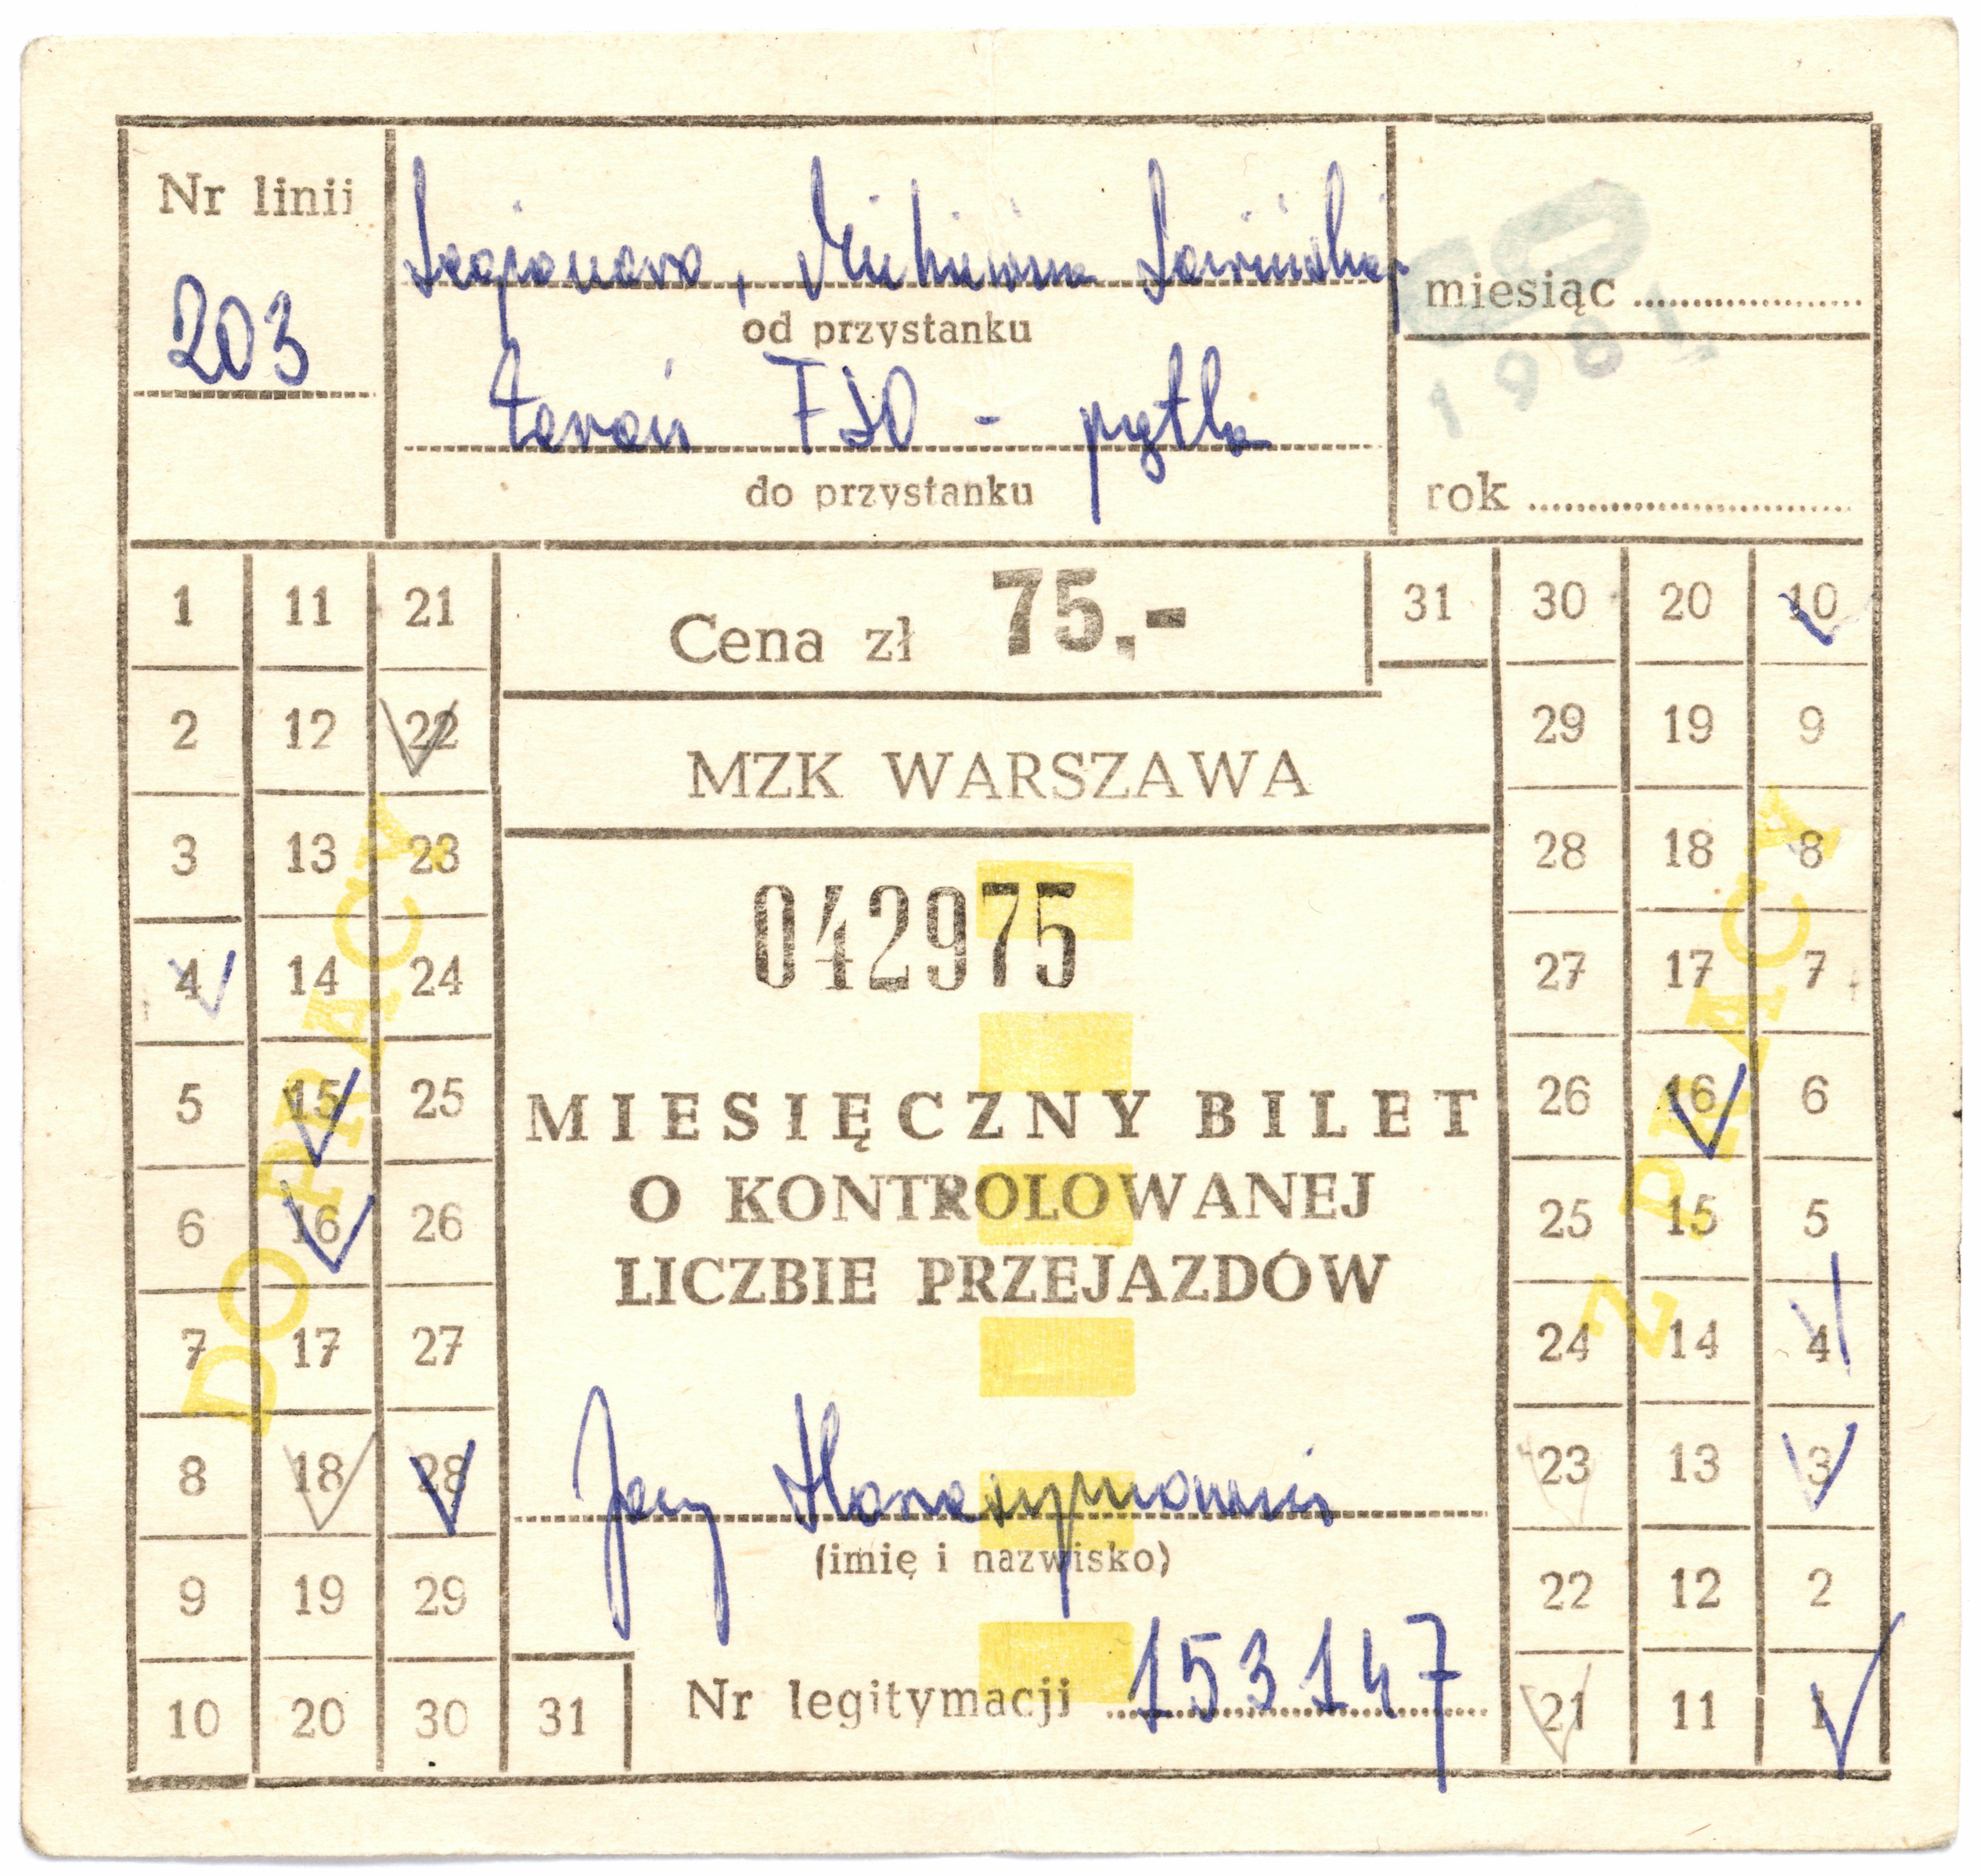 Nr linii
203
Legionowo,
od przystanku
Żerań FSO - pętla
do przystanku
miesiąc
1981
rok
Cena zł 75.-
MZK WARSZAWA
042975
MIESIĘCZNY BILET
O KONTROLOWANEJ
LICZBIE PRZEJAZDÓW
Jerzy
(imię i nazwisko)
Nr legitymacji 153147
1 11 21
2 12 22
3 13 23
4 14 24
5 15 25
6 16 26
7 17 27
8 18 28
9 19 29
10 20 30 31
DO PRACY
31 30 20 10
29 19 9
28 18 8
27 17 7
26 16 6
25 15 5
24 14 4
23 13 3
22 12 2
21 11 1
Z PRACY